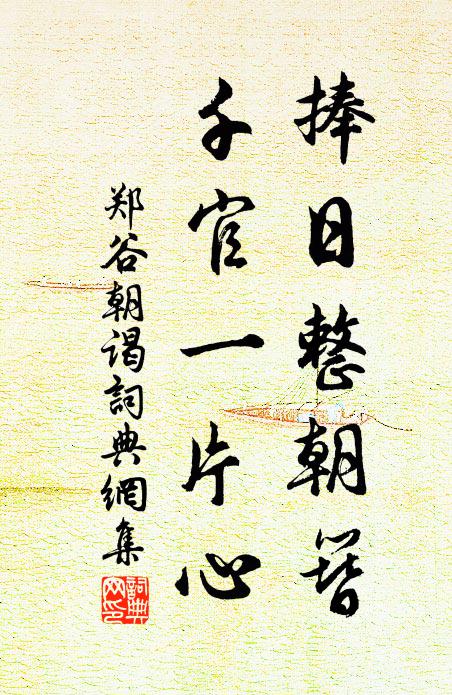 捧日整朝簪
千官一片心
郑谷朝谒詞典網集
詞典
网印